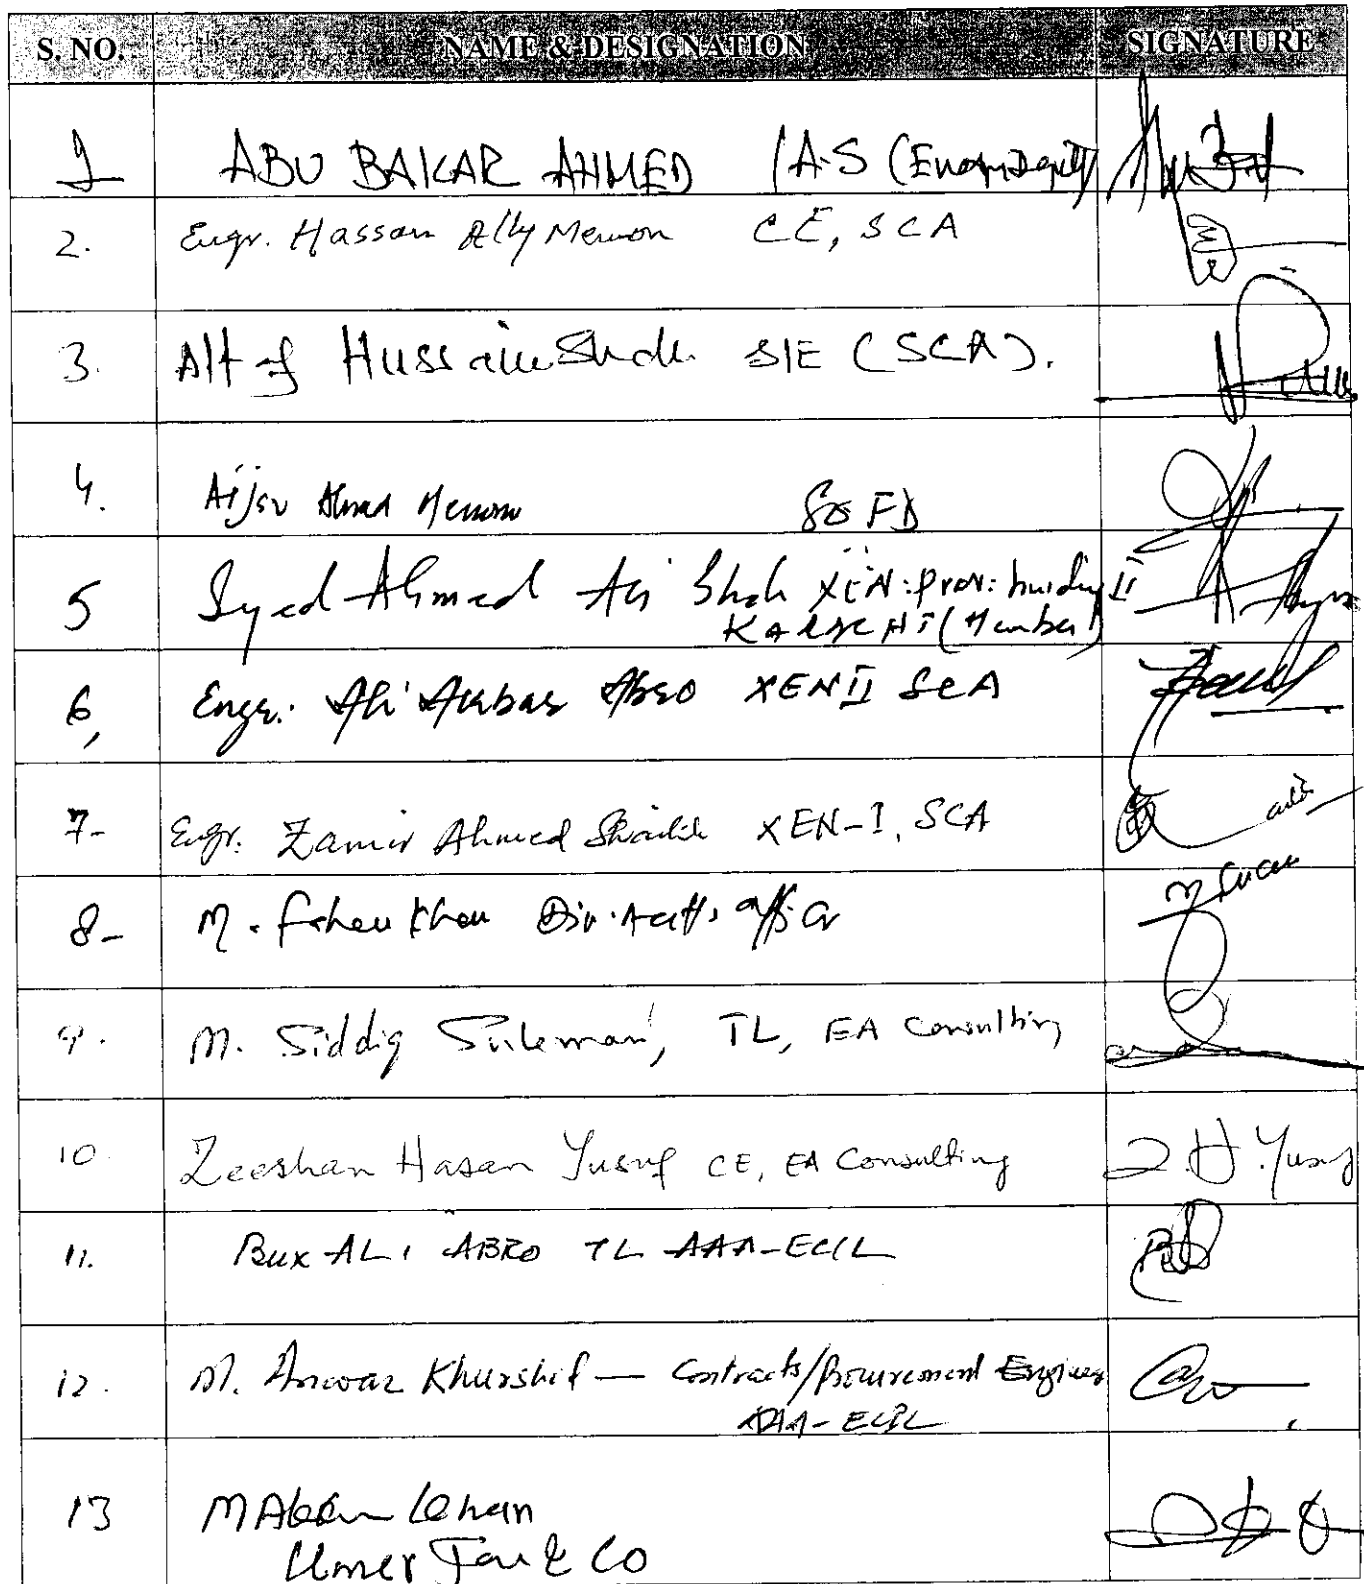 S. NO. NAME & DESIGNATION SIGNATURE
1 ABU BAKAR AHMED / A.S
2. Engr. Hassan Ally Memon CE, SCA
3. Altaf Hussain Shah SE (SCA).
4. Aijaz Ahmed Memon SO FD
5 Syed Ahmed Ali Shah XEN: Prov: building II
KARACHI (Member)
6, Engr. Ali Akbar Abro XEN II SCA
7- Engr. Zamir Ahmed Shaikh XEN-I, SCA
8- M. Khan Div. Acctt. officer
9. M. Siddiq Suleman, TL, EA Consulting
10. Zeeshan Hasan Yusuf CE, EA Consulting Z.H.Yusuf
11. Bux ALI ABRO TL AAA-ECIL
12. M. Anwar Khurshid — Contracts/Procurement Engineer
AAA-ECIL
13 Khan
Umer & Co